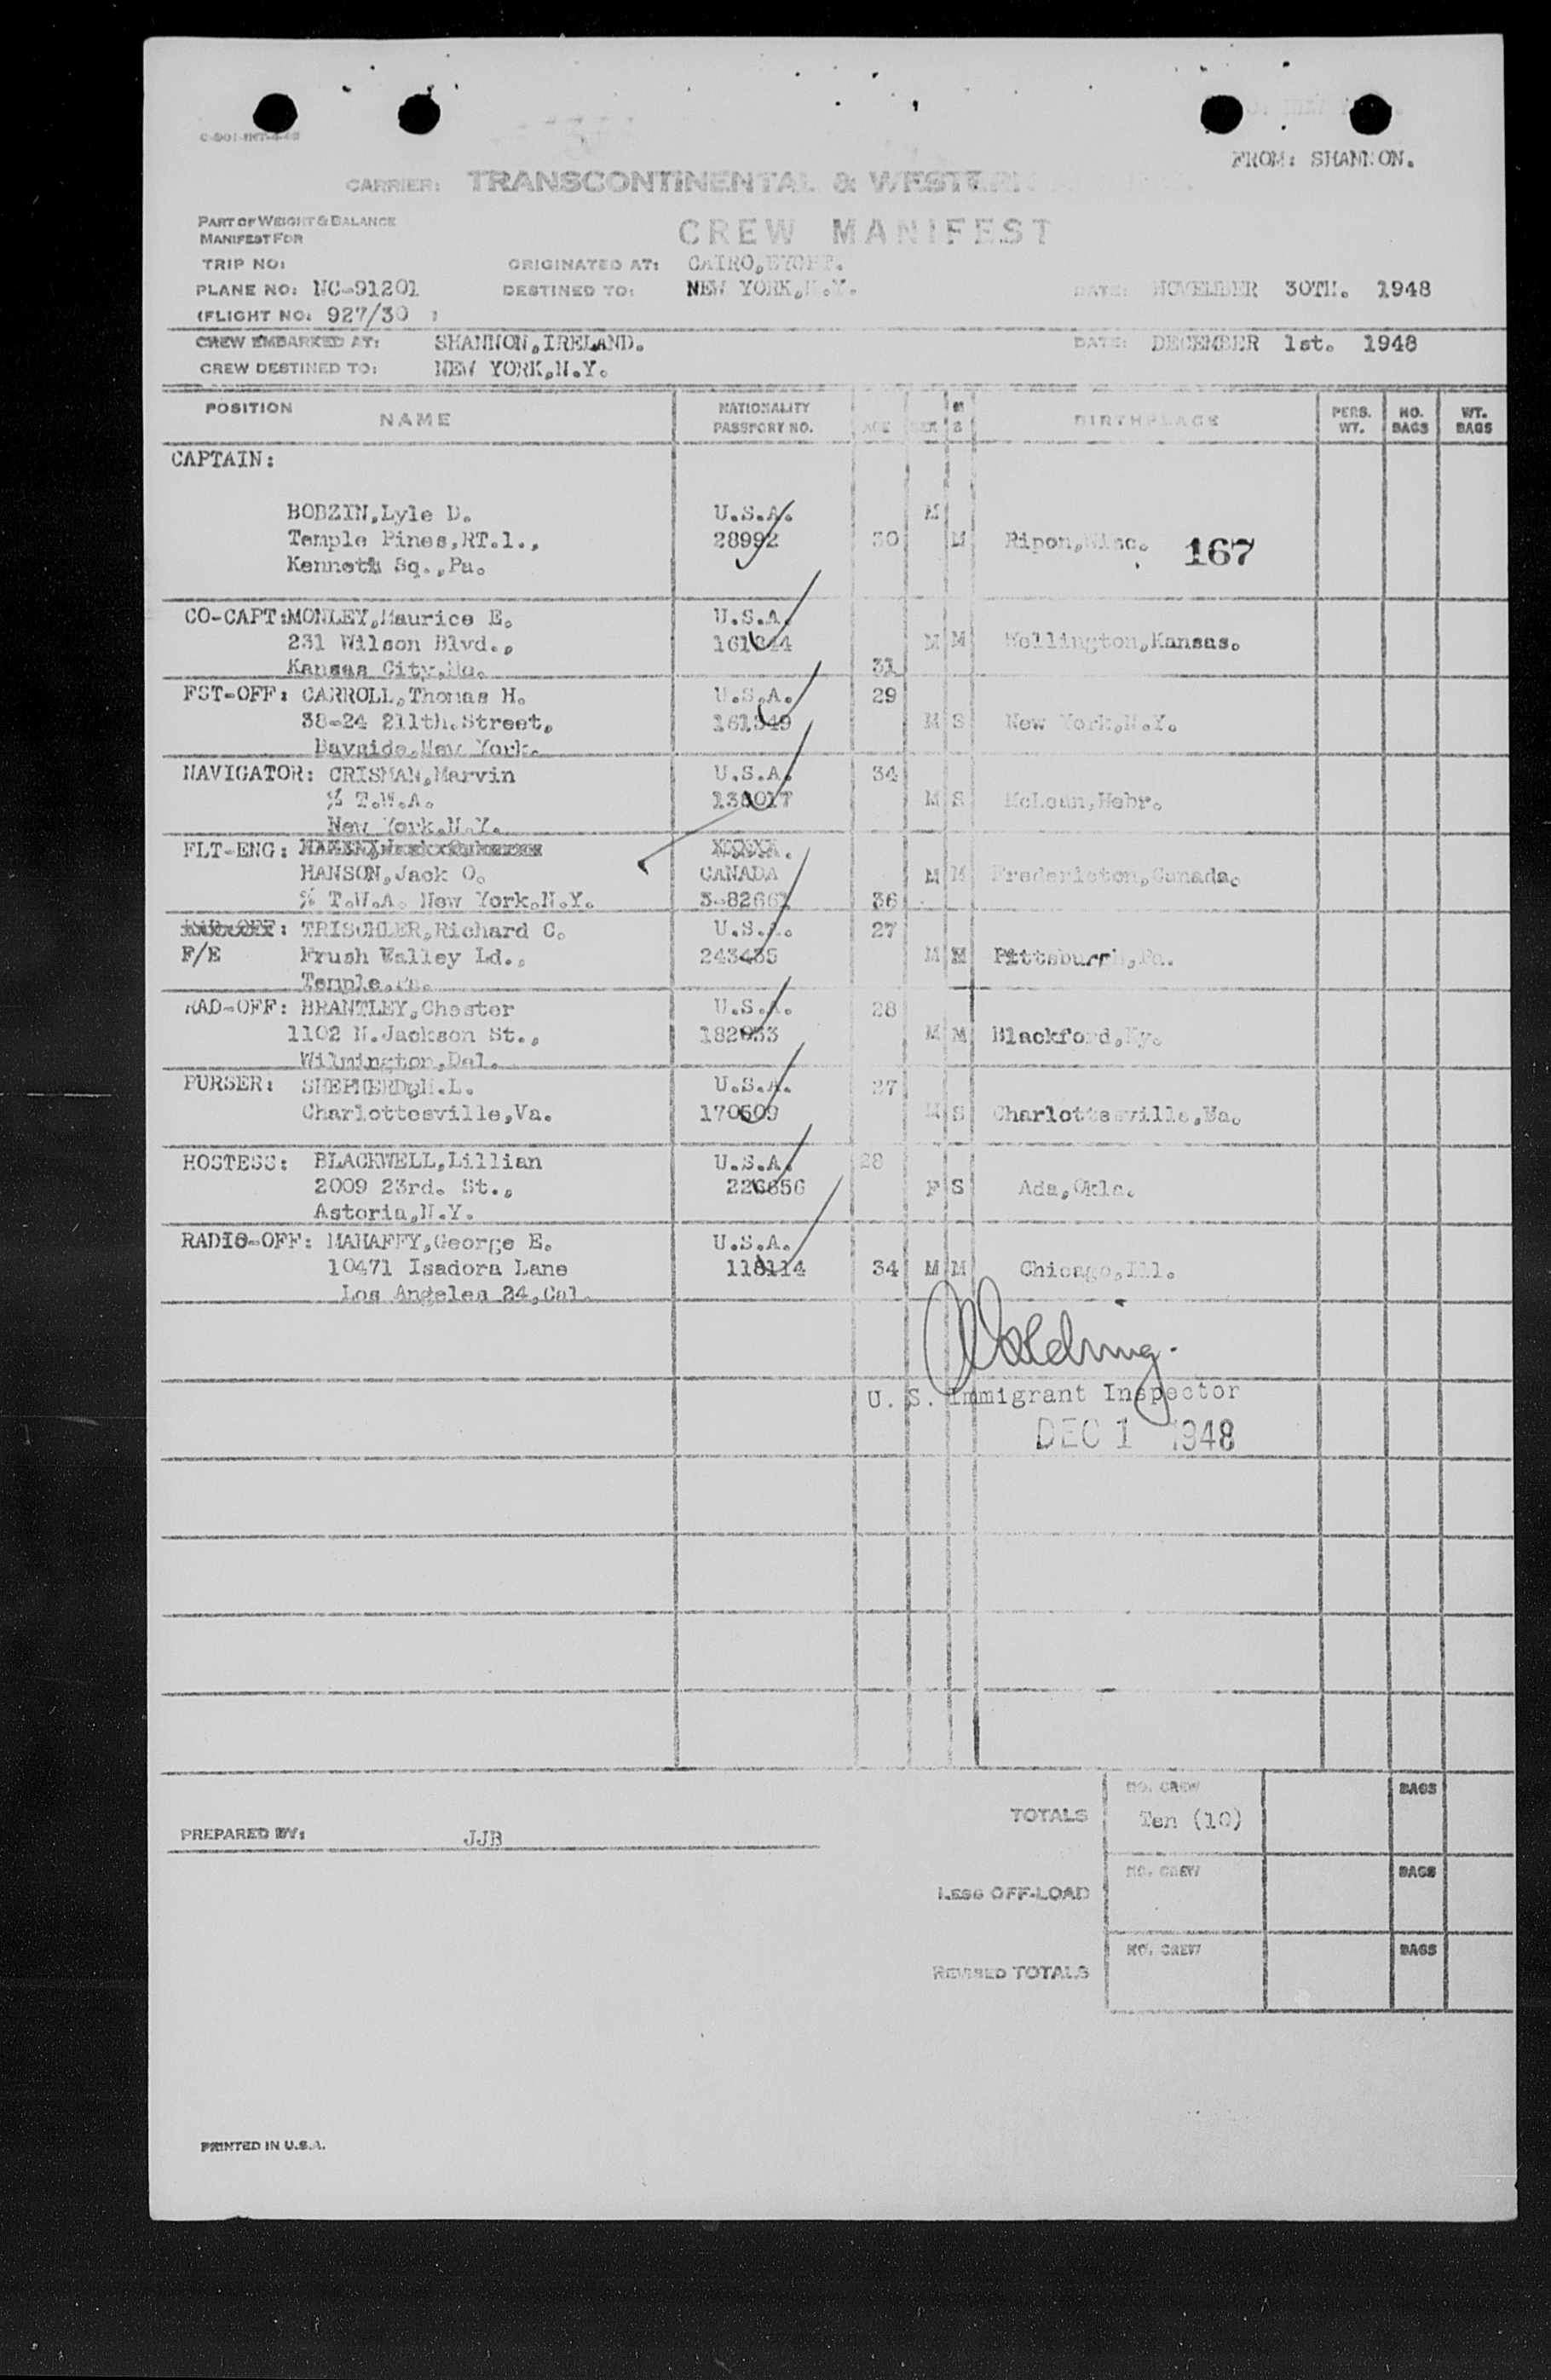 FROM: SHANNON.
CARRIER: TRANSCONTINENTAL & WESTERN
PART OF WEIGHT & BALANCE
MANIFEST FOR
CREW MANIFEST
TRIP NO: ORIGINATED AT: CAIRO, EYGPT.
PLANE NO: NC-91201 DESTINED TO: NEW YORK, N.Y. DATE: NOVEMBER 30TH. 1948
(FLIGHT NO: 927/30 :
CREW EMBARKED AT: SHANNON, IRELAND. DATE: DECEMBER 1st. 1948
CREW DESTINED TO: NEW YORK, N.Y.
POSITION NAME NATIONALITY PASSPORT NO. AGE SEX M S BIRTHPLACE PERS. WT. NO. BAGS WT. BAGS
CAPTAIN:
BOBZIN, Lyle D. U.S.A. M
Temple Pines, RT.1., 28992 30 M Ripon, Wisc. 167
Kenneth Sq., Pa.
CO-CAPT: MONLEY, Maurice E. U.S.A.
231 Wilson Blvd., M M Wellington, Kansas.
Kansas City, Mo. 31
FST-OFF: CARROLL, Thomas H. U.S.A. 29
38-24 211th. Street, 161349 M S New York, N.Y.
Bayside, New York.
NAVIGATOR: CRISMAN, Marvin U.S.A. 34
% T.W.A. 136017 M S McLean, Nebr.
New York, N.Y.
FLT-ENG:
HANSON, Jack O. CANADA M M Fredericton, Canada.
% T.W.A. New York, N.Y. 3-82661 36
: TRISCHLER, Richard C. U.S.A. 27
F/E Frush Valley Ld., 243435 M M Pittsburgh, Pa.
Temple, Pa.
RAD-OFF: BRANTLEY, Chester U.S.A. 28
1102 N. Jackson St., 182033 M M Blackford, Ky.
Wilmington, Del.
PURSER: SHEPHERD, H.L. U.S.A. 27
Charlottesville, Va. 170509 M S Charlottesville, Va.
HOSTESS: BLACKWELL, Lillian U.S.A. 28
2009 23rd. St., 226656 F S Ada, Okla.
Astoria, N.Y.
RADIO-OFF: MAHAFFY, George E. U.S.A.
10471 Isadora Lane 118114 34 M M Chicago, Ill.
Los Angeles 24, Cal.
U. S. Immigrant Inspector
DEC 1 1948
TOTALS NO. CREW Ten (10) BAGS
PREPARED BY: JJB
LESS OFF-LOAD NO. CREW BAGS
REVISED TOTALS NO. CREW BAGS
PRINTED IN U.S.A.